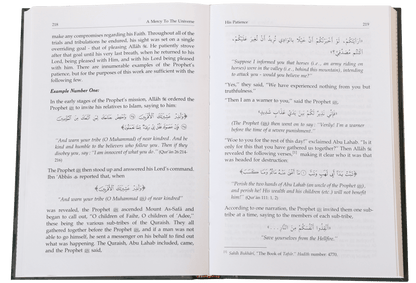 218
A Mercy To The Universe
make any compromises regarding his Faith. Throughout all of the
trials and tribulations he endured, his sight was set on a single
overriding goal - that of pleasing Allâh ﷻ. He patiently strove
after that goal until his very last breath, when he returned to his
Lord, being pleased with Him, and with his Lord being pleased
with him. There are innumerable examples of the Prophet's
patience, but for the purposes of this work are sufficient with the
following few.
Example Number One:
In the early stages of the Prophet's mission, Allâh ﷻ ordered the
Prophet ﷺ to invite his relatives to Islam, saying to him:
"And warn your tribe (O Muhammad) of near kindred. And be
kind and humble to the believers who follow you. Then if they
disobey, say, "I am innocent of what you do." (Qur'an 26:214-
216)
The Prophet ﷺ then stood up and answered his Lord's command.
Ibn 'Abbâs reported that, when
"And warn your tribe (O Muhammad ﷺ) of near kindred"
was revealed, the Prophet ﷺ ascended Mount As-Safâ and
began to call out, "O children of Faihr, O children of 'Adee,"
these being the various sub-tribes of the Quraish. They all
gathered together before the Prophet ﷺ, and if a man was not
able to go himself, he sent a messenger on his behalf to find out
what was happening. The Quraish, Abu Lahab included, came,
and the Prophet ﷺ said,
His Patience
219
"Suppose I informed you that horses (i.e., an army riding on
horses) were in the valley (i.e., behind this mountain), intending
to attack you - would you believe me?"
"Yes," they said, "We have experienced nothing from you but
truthfulness."
"Then I am a warner to you," said the Prophet ﷺ.
(The Prophet ﷺ) then went on to say: "Verily! I'm a warner
before the time of a severe punishment."
"Woe to you for the rest of this day!" exclaimed Abu Lahab. "Is it
only for this that you have gathered us together?" Then Allâh ﷻ
revealed the following verses, making it clear who it was that
was headed for destruction.
"Perish the two hands of Abu Lahab (an uncle of the Prophet ﷺ),
and perish he! His wealth and his children etc.) will not benefit
him!" (Qur'an 111:1, 2)
According to one narration, the Prophet ﷺ invited them one sub-
tribe at a time, saying to the members of each sub-tribe,
"Save yourselves from the Hellfire,"
Sahih Bukhâri, "The Book of Tafsir," Hadith number: 4770.